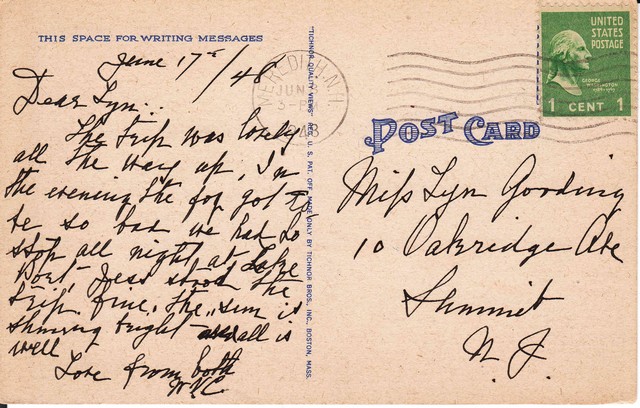 THIS SPACE FOR WRITING MESSAGES
June 17th / 48
Dear Lyn..
The trip was lovely
all the way up, In
the evening the fog got to
be so bad we had to
stop all night at Lake
Port, Jess stood the
trip fine. The sun is
shinning bright and all is
well
Love from both
W.V.C.
"TICHNOR QUALITY VIEWS" REG. U. S. PAT. OFF. MADE ONLY BY TICHNOR BROS. INC., BOSTON, MASS.
MEREDITH, N.H.
JUN
3-P
48
UNITED
STATES
POSTAGE
GEORGE
WASHINGTON
1 CENT 1
POST CARD
Miss Lyn Gooding
10 Oakridge Ave
Summit
N. J.